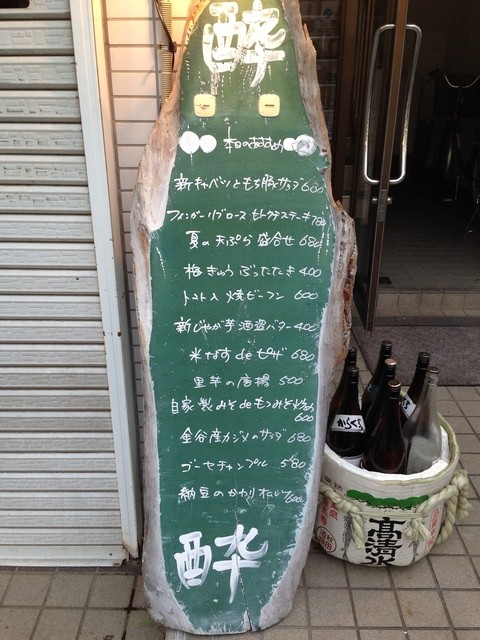 酔
本日のおすすめ
新キャベツともち豚サラダ 600
フィンガーリブロース ステーキ 780
夏の天ぷら盛合せ 680
梅きゅうぶったたき 400
トマト入焼ビーフン 600
新じゃが芋酒盗バター 400
米なすdeピザ 680
里芋の唐揚 500
自家製みそdeもつみそ炒め 600
金谷産カジメのサラダ 680
ゴーヤチャンプル 580
納豆のかわり 600
酔
からくち
髙清水